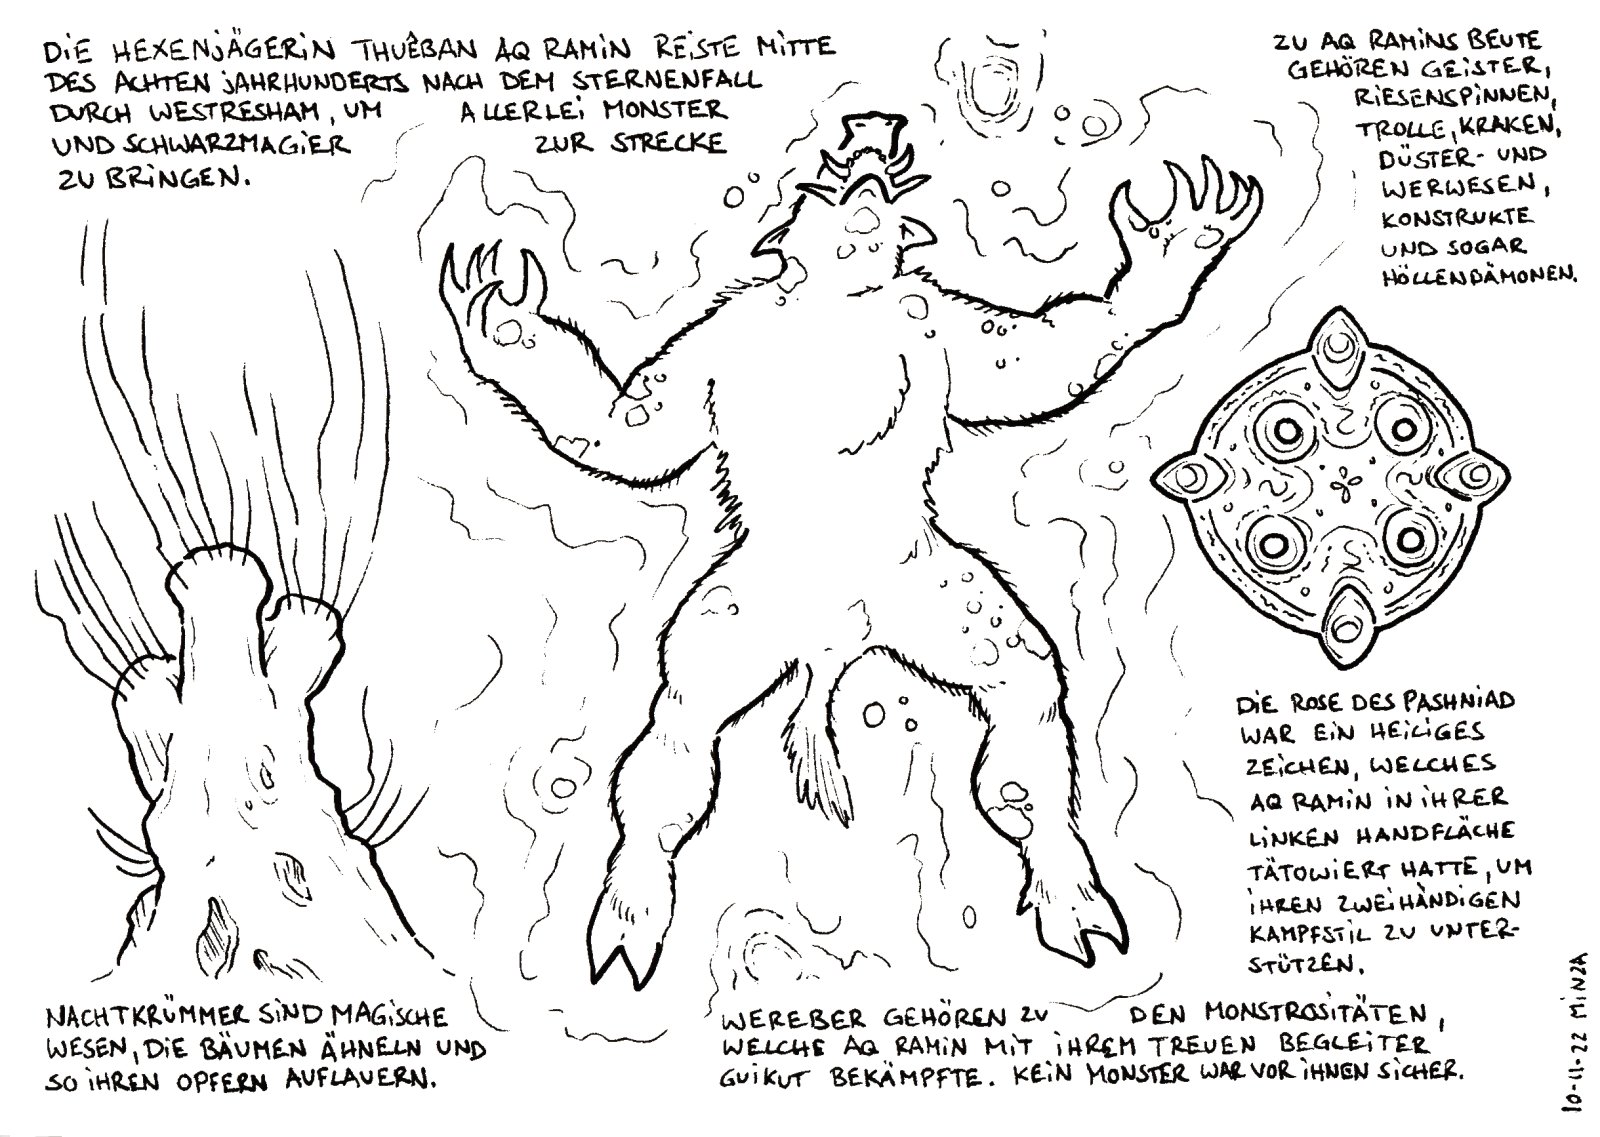 DIE HEXENJÄGERIN THUÊBAN AQ RAMIN REISTE MITTE
DES ACHTEN JAHRHUNDERTS NACH DEM STERNENFALL
DURCH WESTRESHAM, UM ALLERLEI MONSTER
UND SCHWARZMAGIER ZUR STRECKE
ZU BRINGEN.
ZU AQ RAMINS BEUTE
GEHÖREN GEISTER,
RIESENSPINNEN,
TROLLE, KRAKEN,
DÜSTER- UND
WERWESEN,
KONSTRUKTE
UND SOGAR
HÖLLENDÄMONEN.
DIE ROSE DES PASHNIAD
WAR EIN HEILIGES
ZEICHEN, WELCHES
AQ RAMIN IN IHRER
LINKEN HANDFLÄCHE
TÄTOWIERT HATTE, UM
IHREN ZWEIHÄNDIGEN
KAMPFSTIL ZU UNTER-
STÜTZEN.
NACHTKRÜMMER SIND MAGISCHE
WESEN, DIE BÄUMEN ÄHNELN UND
SO IHREN OPFERN AUFLAUERN.
WEREBER GEHÖREN ZU DEN MONSTROSITÄTEN,
WELCHE AQ RAMIN MIT IHREM TREUEN BEGLEITER
GUIKUT BEKÄMPFTE. KEIN MONSTER WAR VOR IHNEN SICHER.
10-11-22 MINZA